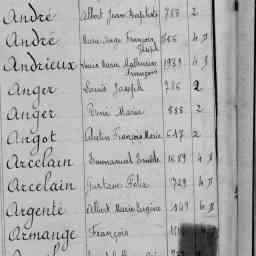 André Albert Jean Baptiste 788 2
André Marie Ange François Joseph 4
Andrieux Louis Mathurin François 1939 4
Anger Louis Joseph 786 2
Anger René Marie 888 2
Angot François Marie 647 2
Arcelain Emmanuel 1689 4
Arcelain Gustave Félix 729 4
Argenté Albert Marie Eugène 6
Armange François